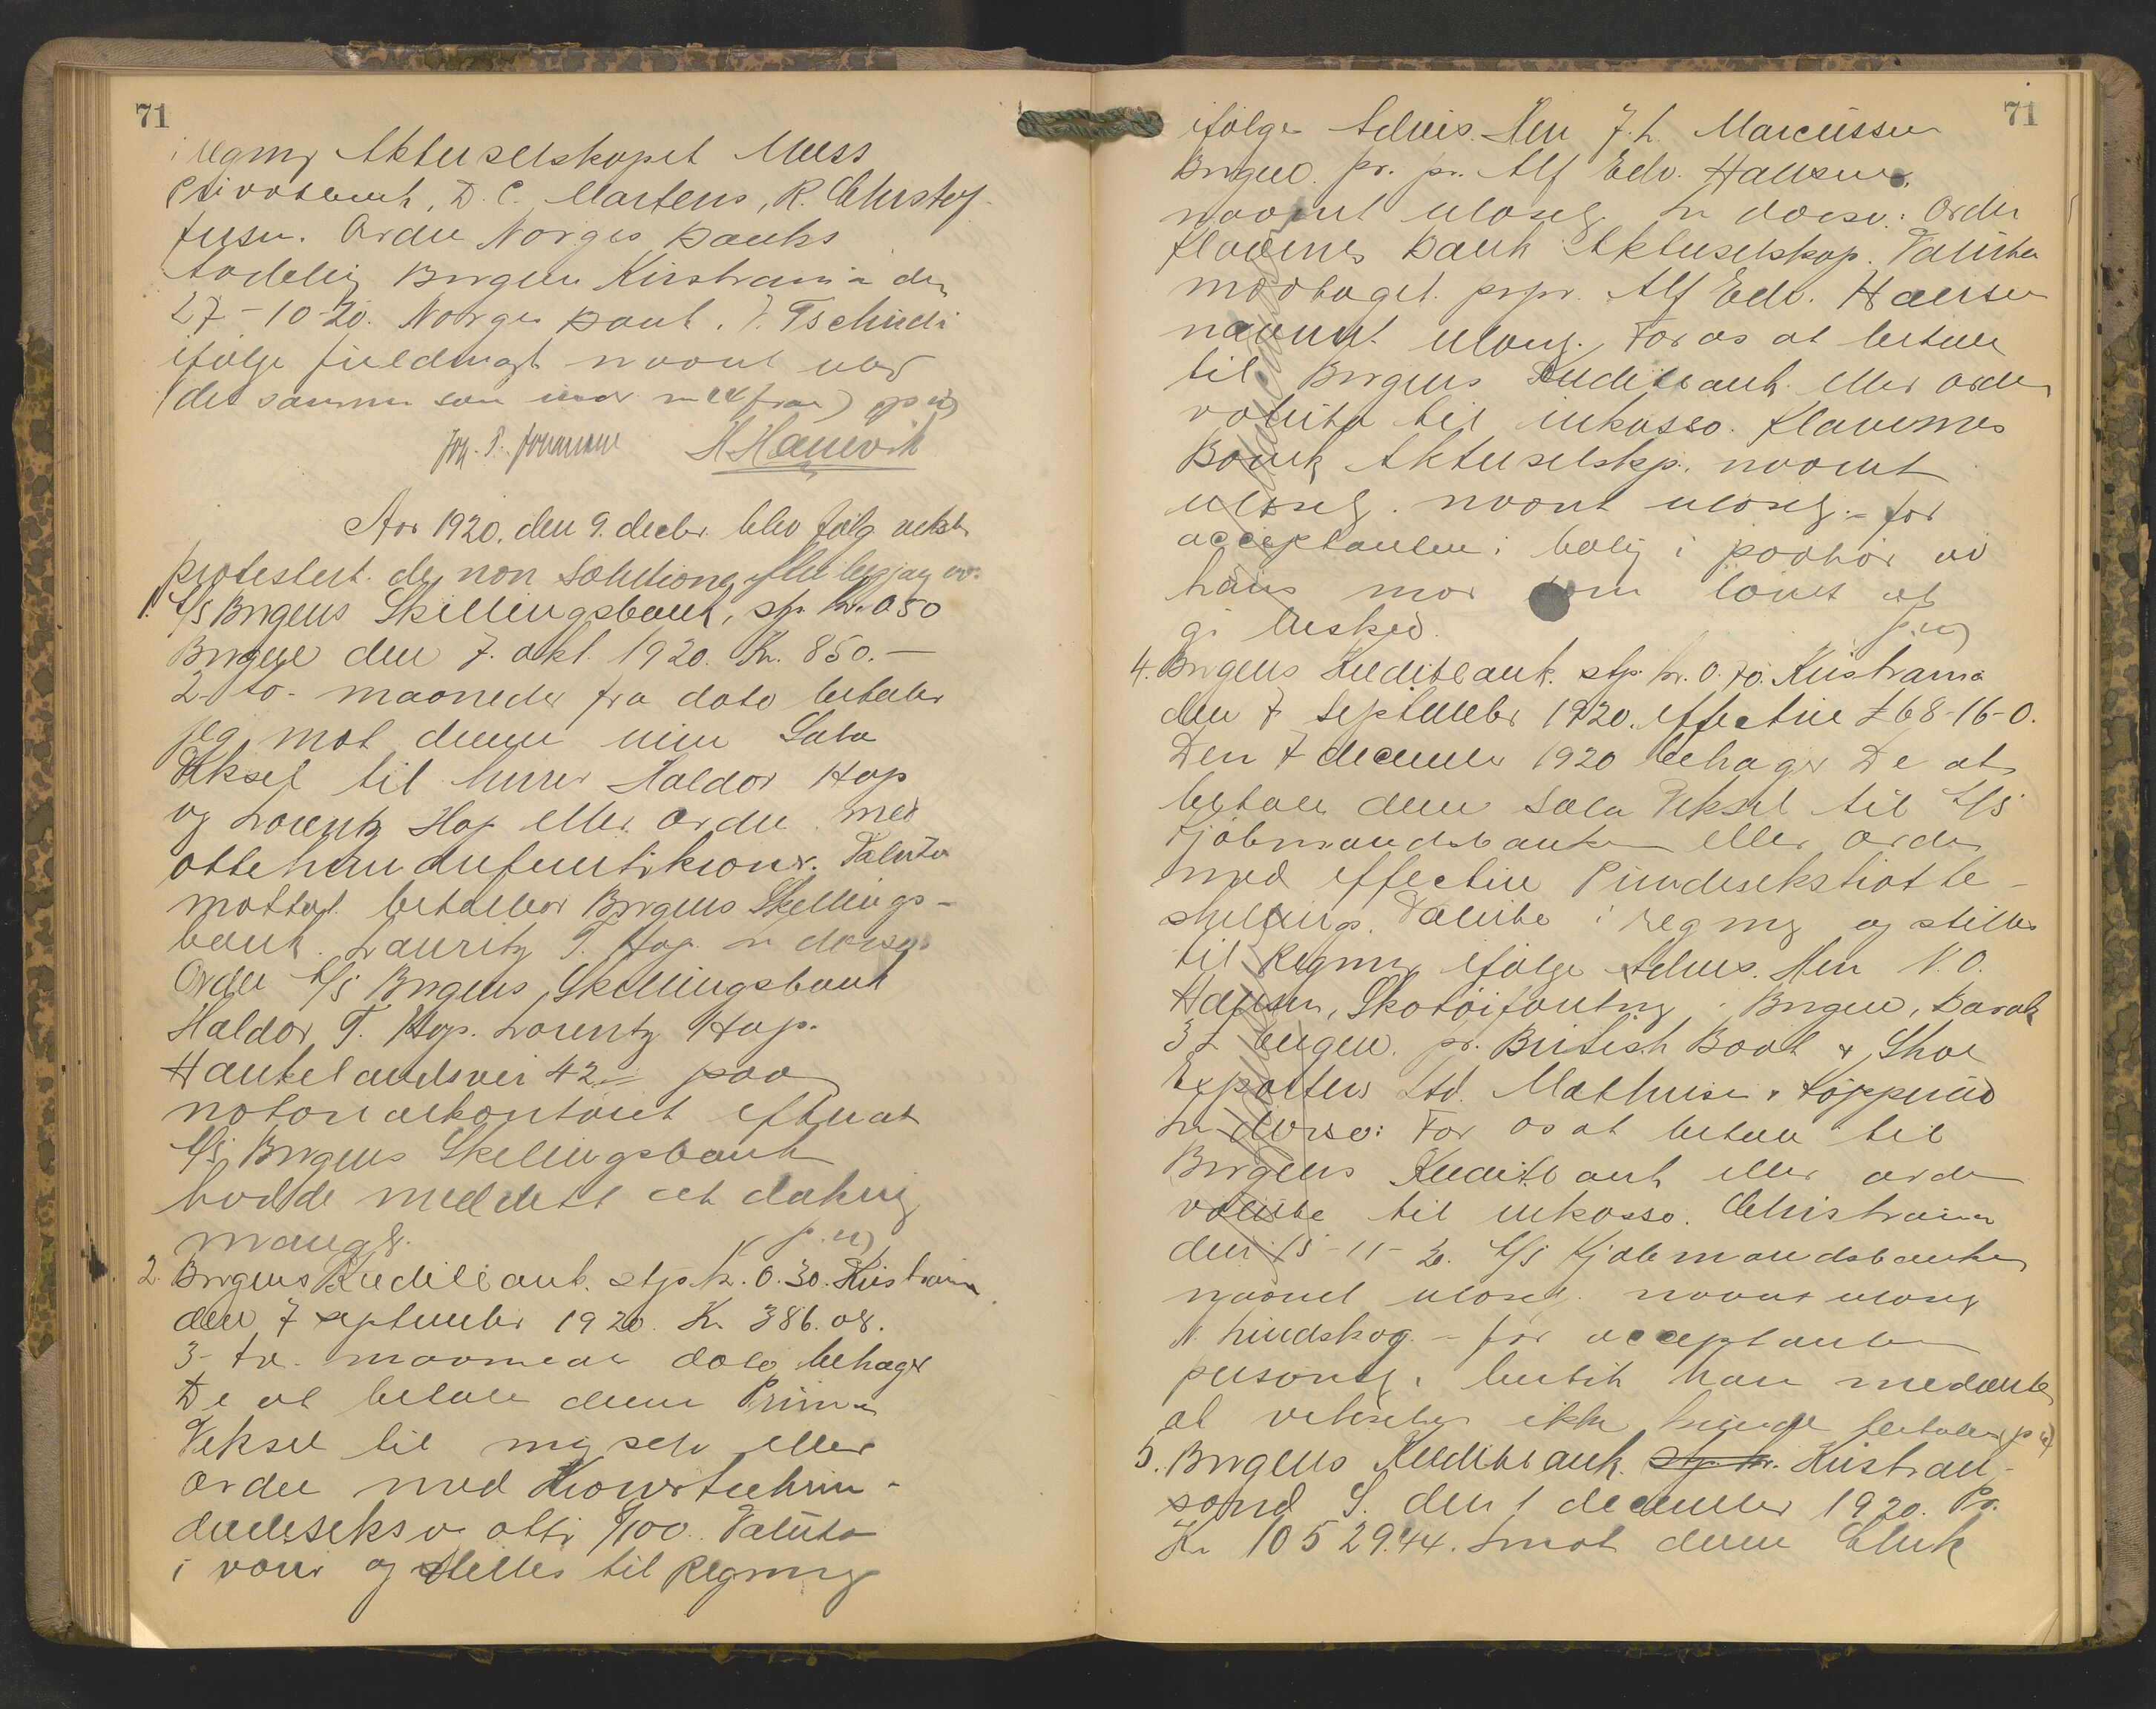 71
i regning Aktieselskapet Mess
Privatbank, D. C. Martens, R. Christof-
fersen. Ordre Norges Banks
Avdeling Bergen Kristiania den
27-10-20. Norges Bank. J. Tschudi
ifølge fuldmagt navnet
(det samme som
H Hauevik
Aar 1920. den 9. decbr. blev følg veksl.
protestert de non solutione efter begjæring av:
1. A/S Bergens Skillingsbank, stp. kr. 0 50
Bergen den 7. okt. 1920. Kr. 850.-
2- to- maaneder fra dato betaler
jeg mot denne min Sola
Veksel til herrer Haldor Hop
og Lorentz Hop eller ordre med
ottehundrefemtikroner. Valuta
mottat. betalbar Bergens Skillings-
bank. Lauritz T. Hop. in dorso:
Ordre A/S Bergens Skillingsbank
Haldor T. Hop. Lorentz Hop.
Haukelandsvei 42 - paa
notarialkontoret efterat
A/S Bergens Skillingsbank
hadde meddelt at dækning
mangler. p.n)
2. Bergens Kreditbank. stp. kr. 0.30. Kristiania
den 7 september 1920. Kr. 386.08.
3- tre- maaneder dato behager
De at betale denne Prima
Veksel til mig selv eller
ordre med Kroner trehun-
dredeseks o otti 8/100. Valuta
i varer og stilles til Regning
71
ifølge Advis. Herr J. L. Marcussen
Bergen. pr. pr. Alf Edv. Hansen
navnet ulæsel. in dorso: Ordre
Flavenes Bank Aktieselskap. Valuta
modtaget. prpr. Alf Edv. Hansen
navnet ulæsel. For os at betale
til Bergens Kreditbank eller ordre
valuta til inkasso. Flavenes
Bank Aktieselskp. navnet
ulæsel. navnet ulæsel. - for
acceptanten i bolig i paahør av
hans mor som lovet at
gi besked. p.n)
4. Bergens Kreditbank. stp. kr. 0.70. Kristiania
den 7 september 1920. effective £ 68-16-0.
Den 7 december 1920 behager De at
betale denne Sola Veksel til A/S
Kjøbmandsbanken eller ordre
med effective Pundsekstiotte-
shillings. Valuta i regning og stilles
til Regning ifølge Advis. Herr N. O.
Hansen, Skotøiforretning, Bergen, Barak
3 Engen. pr. British Boot & Shoe
Exporters Ltd. Mathiesen & Kopperud
in dorso: For os at betale til
Bergens Kreditbank eller ordre
valuta til inkasso. Christiania
den 15-11-20. A/S Kjøbmandsbanken
navnet ulæsel. navnet ulæsel
N. Lindskog. - for acceptanten
personlig i butik han meddelte
at vekselen ikke kunde betales (p n)
5. Bergens Kreditbank. stp. kr. Kristian-
sand S. den 1 december 1920. Pr.
Kr. 10529.44. Imot denne Chek